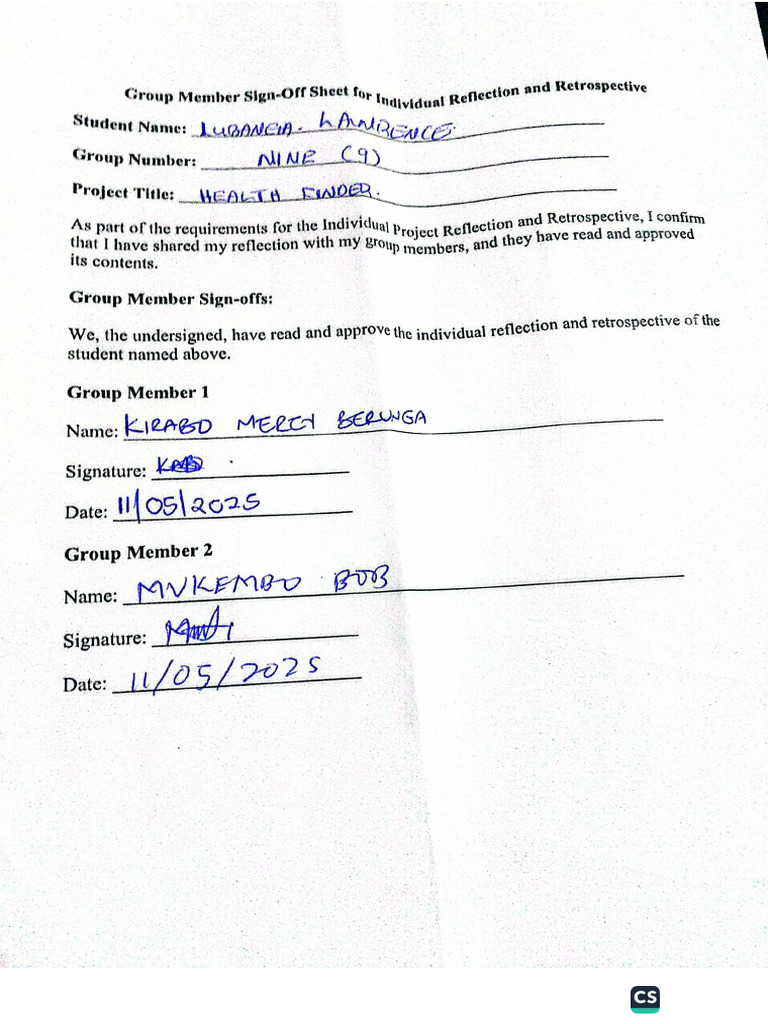 Group Member Sign-Off Sheet for Individual Reflection and Retrospective
Student Name: LUBANGA. LAWRENCE.
Group Number: NINE (9)
Project Title: HEALTH FINDER.
As part of the requirements for the Individual Project Reflection and Retrospective, I confirm
that I have shared my reflection with my group members, and they have read and approved
its contents.
Group Member Sign-offs:
We, the undersigned, have read and approve the individual reflection and retrospective of the
student named above.
Group Member 1
Name: KIRABO MERCY BERUNGA
Signature:
Date: 11/05/2025
Group Member 2
Name: MUKEMBO BOB
Signature:
Date: 11/05/2025
CS